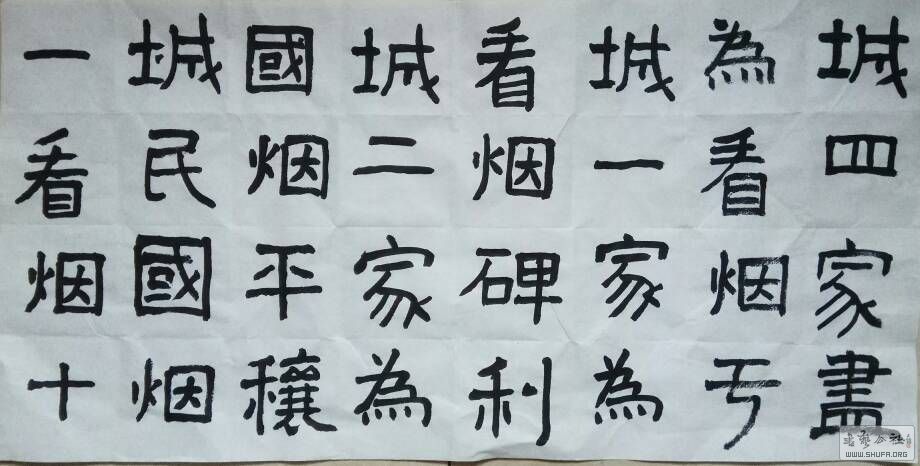 城四家盡
為看烟亏
城一家為
看烟碑利
城二家為
國烟平穰
城民國烟
一看烟十
书艺公社
WWW.SHUFA.ORG